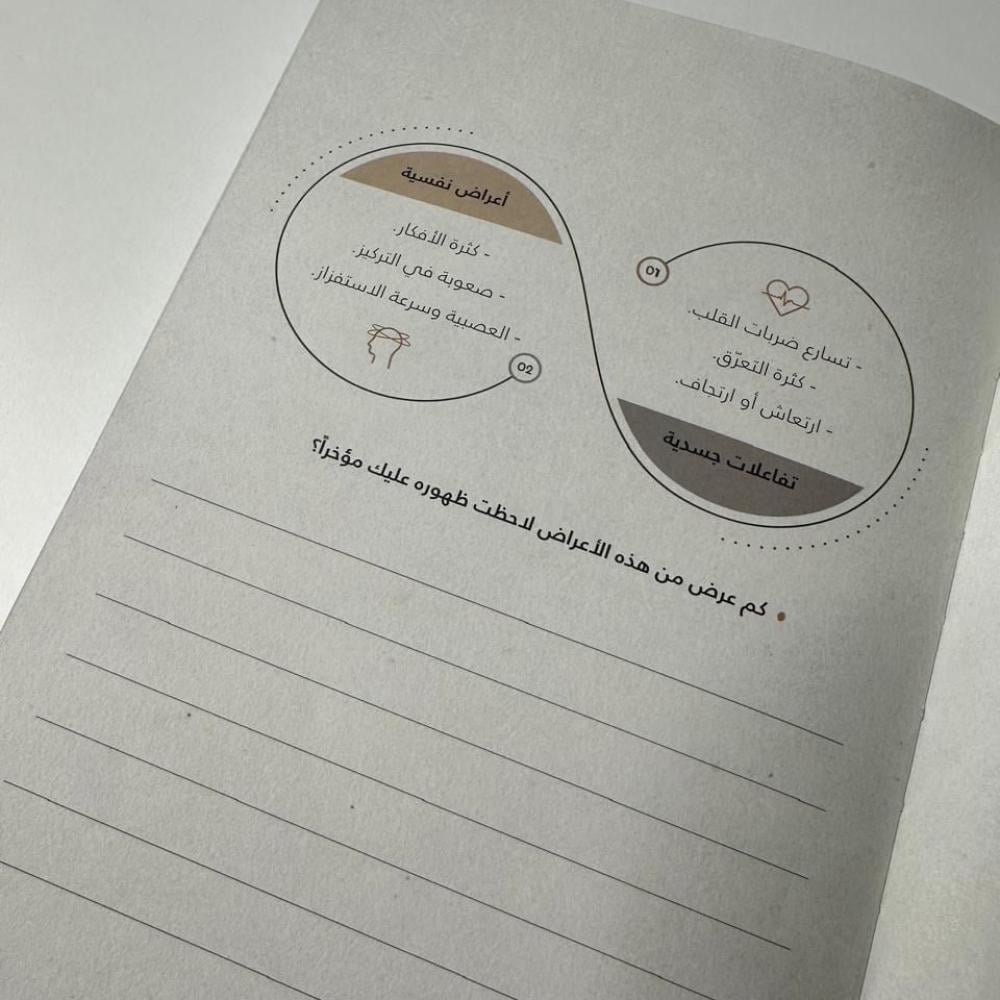 01
- تسارع ضربات القلب.
- كثرة التعرّق.
- ارتعاش أو ارتجاف.
تفاعلات جسدية
أعراض نفسية
- كثرة الأفكار.
- صعوبة في التركيز.
- العصبية وسرعة الاستفزاز.
02
• كم عرض من هذه الأعراض لاحظت ظهوره عليك مؤخراً؟